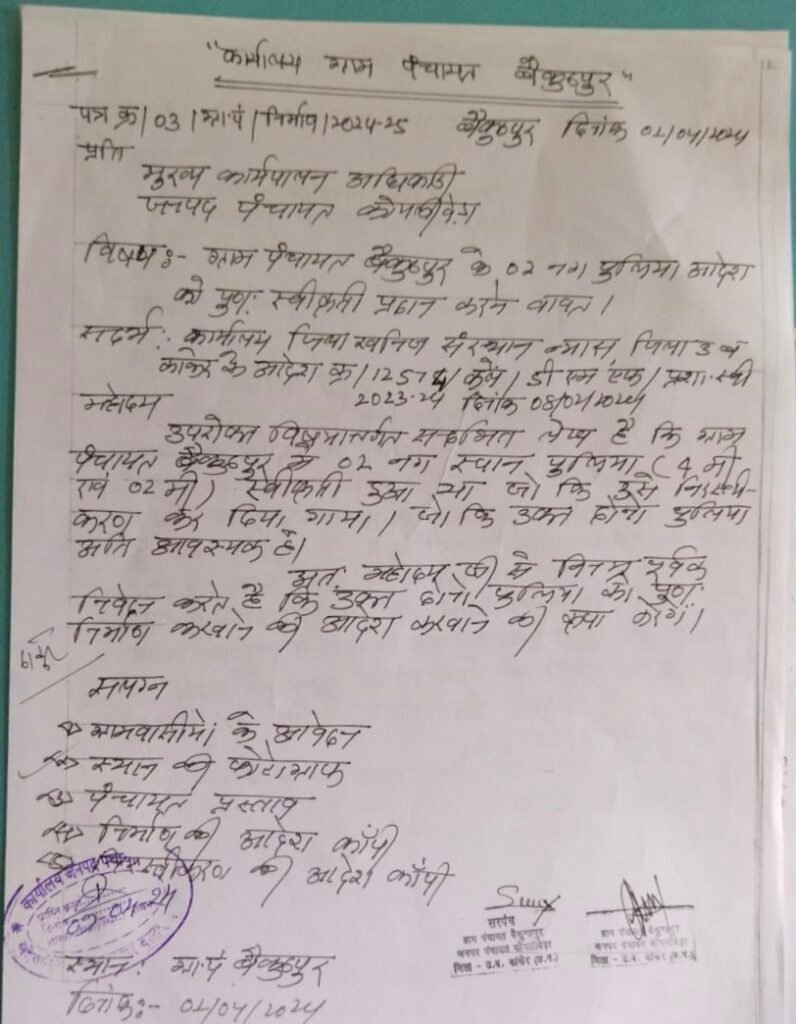 "कार्यालय ग्राम पंचायत बैकुण्ठपुर"
पत्र क्र/03/ग्रा.पं/निर्माण/2024-25 बैकुण्ठपुर दिनांक 02/04/2024
प्रति
मुख्य कार्यपालन अधिकारी
जनपद पंचायत कोयलीबेड़ा
विषय:- ग्राम पंचायत बैकुण्ठपुर के 02 नग पुलिया आदेश
को पुण: स्वीकृती प्रदान करने बावत।
सदर्भ: कार्यालय जिला खनिज संस्थान न्यास, जिला उ ब
कांकेर के आदेश क्र/1257/ डी एम एफ/ प्रशा.स्वी
2023-24 दिनांक 08/02/2024
महोदय
उपरोक्त विषयान्तर्गत सन्दर्भित लेख है कि ग्राम
पंचायत बैकुण्ठपुर में 02 नग स्थान पुलिया (4 मी
एवं 02 मी) स्वीकृती हुआ था जो कि उसे
करण कर दिया गाया। जो कि उक्त दोनो पुलिया
अति आवस्यक है।
अत: महोदय जी से विनम्र पूर्वक
निवेदन करते है कि उक्त दोनो पुलिया को पुण:
निर्माण करवाने की आदेश करवाने की कृपा करेगें।
सलग्न
ग्रामवासीयों के आवेदन
स्थान की फोटोग्राफ
पंचायत प्रस्ताव
निर्माण की आदेश कॉपी
की आदेश कॉपी
कार्यालय जनपद पंचायत
02-04-24
सरपंच
ग्राम पंचायत बैकुण्ठपुर
जनपद पंचायत कोयलीबेड़ा
जिला - उ.ब. कांकेर (छ.ग.)
ग्राम पंचायत बैकुण्ठपुर
जनपद पंचायत कोयलीबेड़ा
जिला - उ.ब. कांकेर (छ.ग.)
स्थान: ग्रा.पं बैकुण्ठपुर
दिनांक:- 02/04/2024